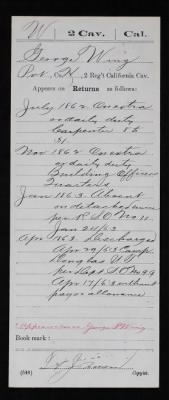 W | 2 Cav. | Cal.
George Wing
Pvt, Co. K, 2 Reg't California Cav.
Appears on Returns as follows:
July 1862 Onextra
or daily duty
Carpenter 8 to
31
Nov 1862 Onextra
or daily duty
Building Officers
Quarters
Jan 1863 Absent
on detached service
per R S O No 11
Jan 24/63
Apr 1863 Discharged
Apr 29/63 Camp
Douglas U T
per Dept S O No 99
Apr 17/63 without
pay or allowance
George Wing
Book mark:
(546)
Copyist.